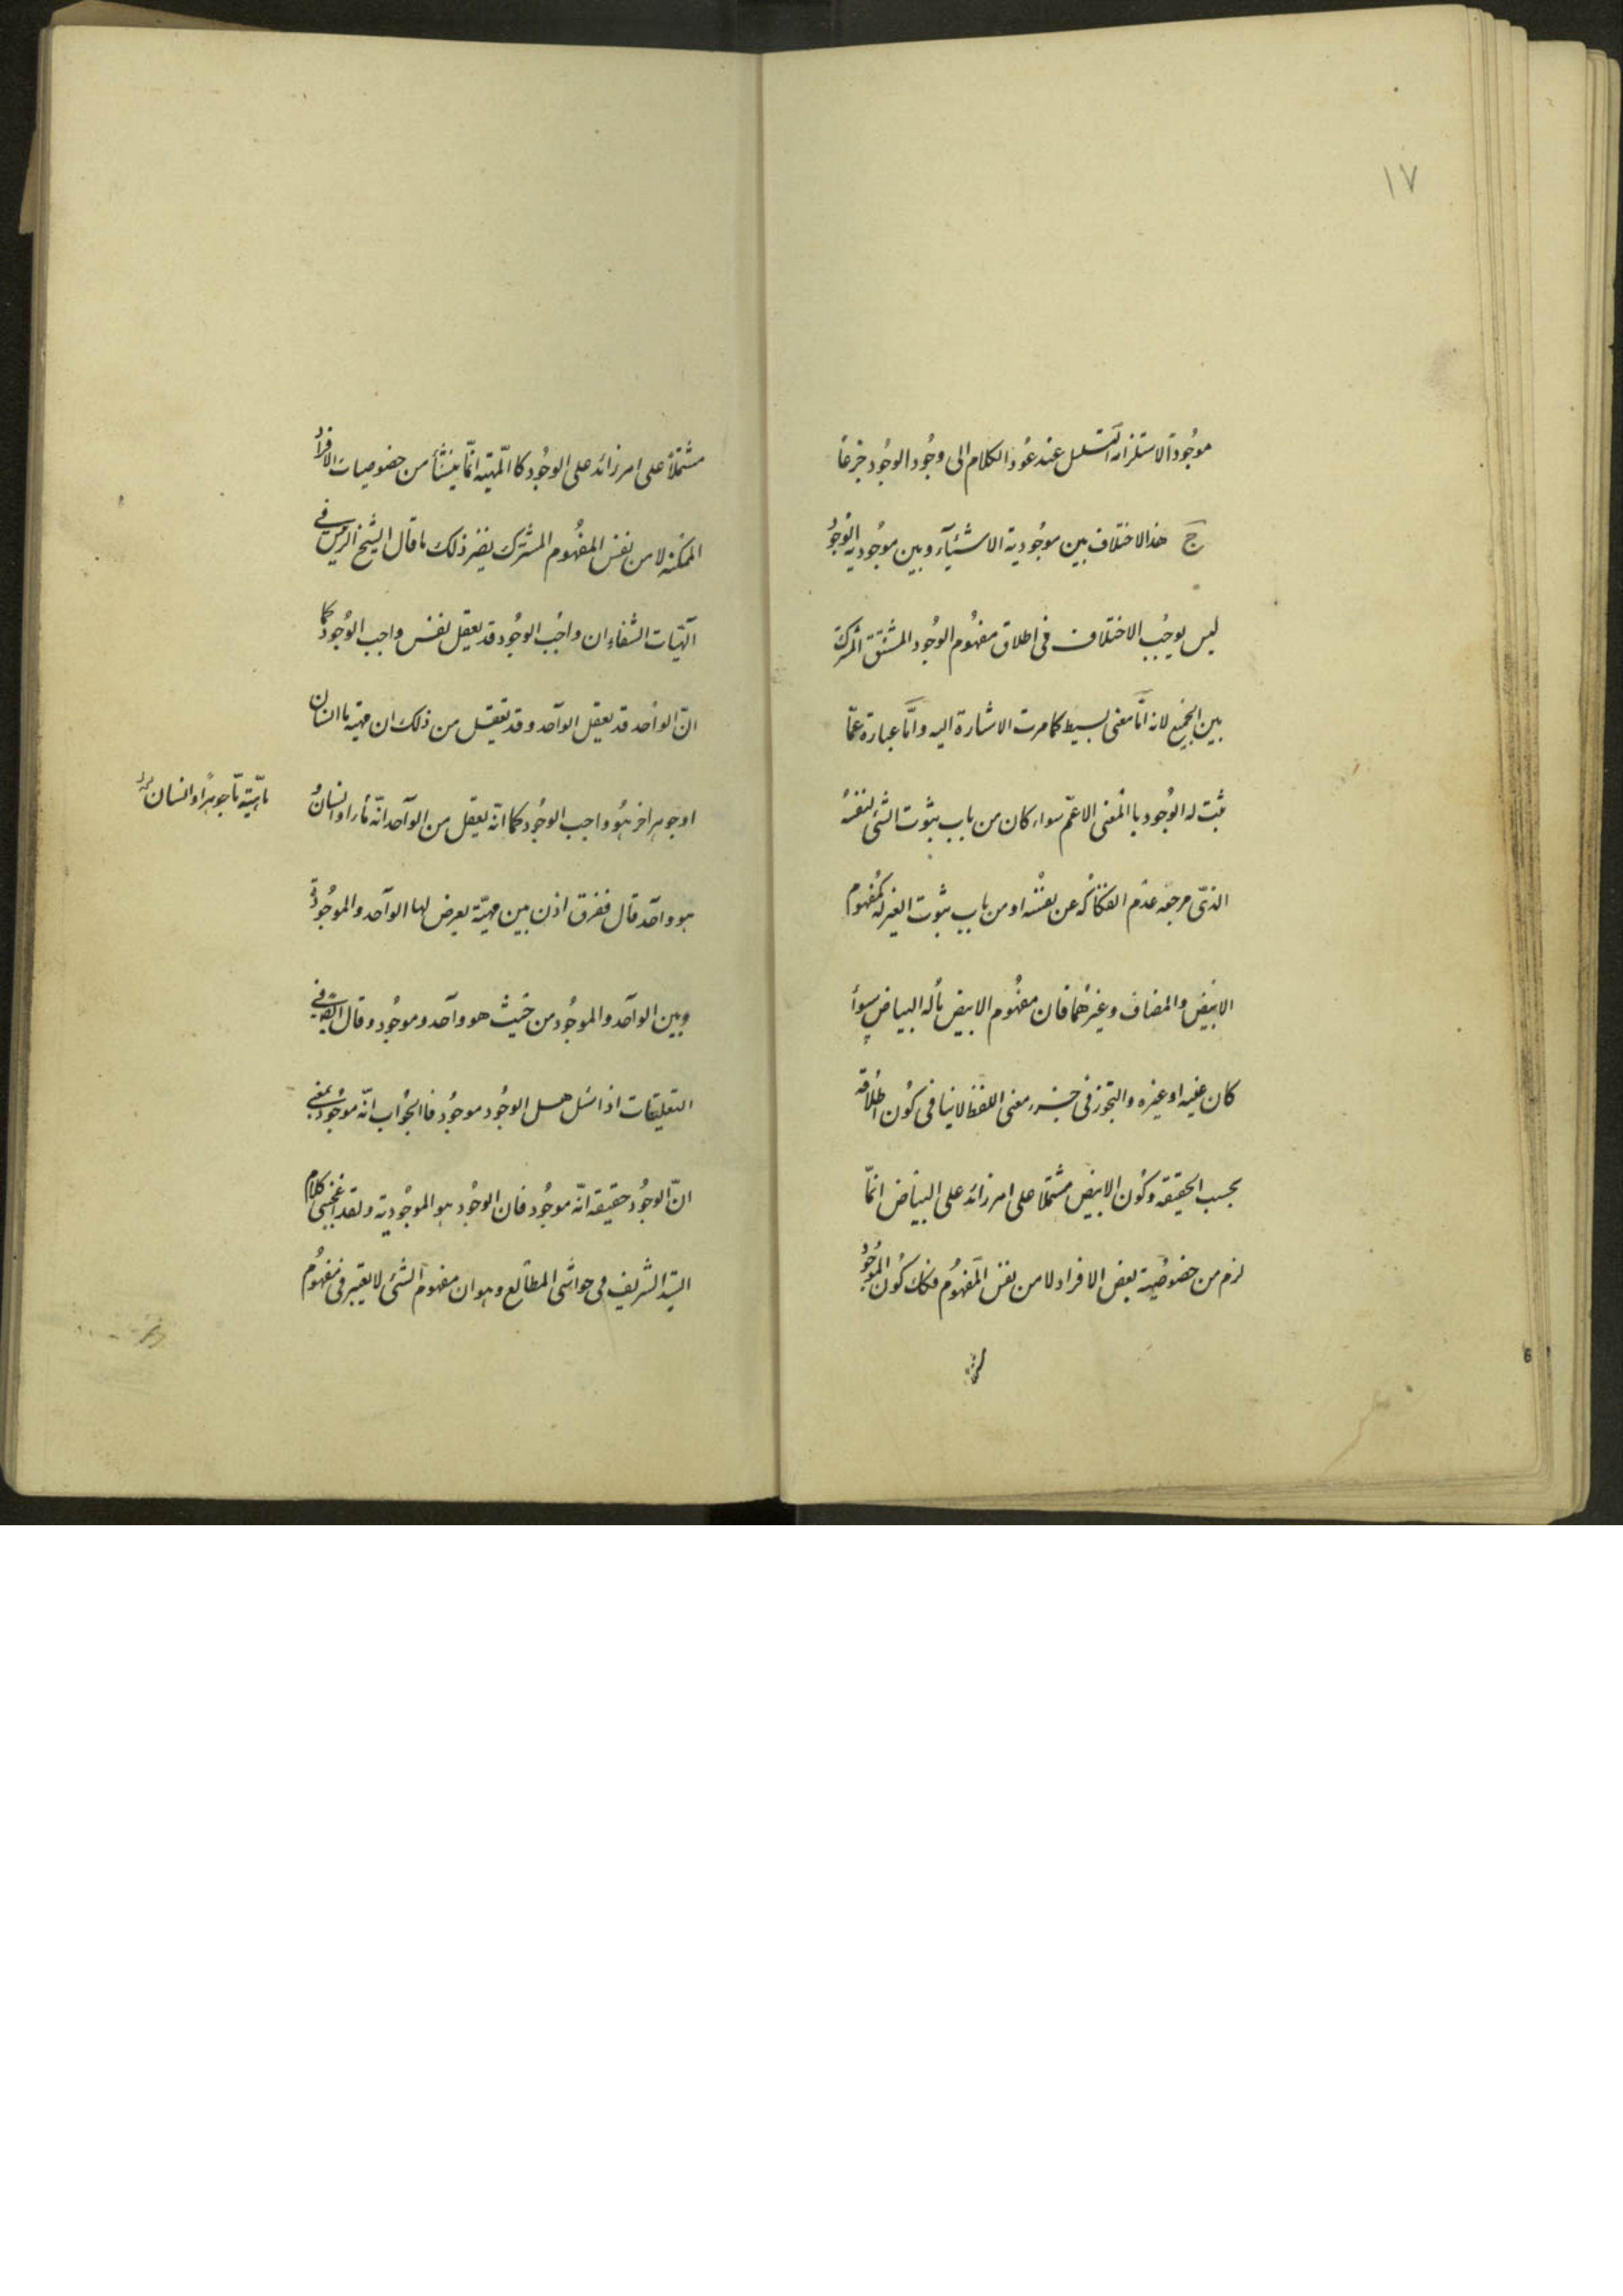 ١٧
موجودة لاستلزامه التسلسل عند عود الكلام الى وجود الوجود جزعاً
ج هذا الاختلاف بين موجودية الاشياء وبين موجودية الوجود
ليس يوجب الاختلاف فى اطلاق مفهوم الوجود المشتق المشترك
بين الجميع لانه امّا معنى بسيط كما مرت الاشارة اليه وامّا عبارة عمّا
ثبت له الوجود بالمعنى الاعمّ سواء كان من باب ثبوت الشئ لنفسه
الذى مرجعه عدم انفكاكه عن نفسه او من باب ثبوت الغير له كمفهوم
الابيض والمضاف وغيرهما فان مفهوم الابيض ما له البياض سواء
كان عينه او غيره والتجوز فى جزء معنى اللفظ لا ينافى كون اطلاقه
بحسب الحقيقه وكون الابيض مشتملا على امر زائد على البياض انمّا
لزم من خصوصية بعض الافراد لا من نفس المفهوم فكذلك كون الموجود
مشتملاً على امر زائد على الوجود كالمهيّة انمّا ينشأ من خصوصيات الافراد
الممكنه لا من نفس المفهوم المشترك نظير ذلك ما قال الشيخ الرئيس فى
الهيّات الشفاء ان واجب الوجود قد يعقل نفس واجب الوجود كما
انّ الواحد قد يعقل الواحد وقد تعقل من ذلك ان مهيّة ما انسان
او جوهر اخر هو واجب الوجود كما انّه يعقل من الواحد انّه ماء او انسان
ماهيّته ما جوهراً و انسان
هو واحد قال ففرق اذن بين مهيّة يعرض لها الواحد والموجود
وبين الواحد والموجود من حيث هو واحد وموجود وقال ايضاً فى
التعليقات اذا سئل هل الوجود موجود فالجواب انّه موجود بمعنى
انّ الوجود حقيقه انّه موجود فان الوجود هو الموجودية ولقد اعجبنى كلام
السيّد الشريف فى حواشى المطالع وهو ان مفهوم الشئ لا يعتبر فى مفهوم